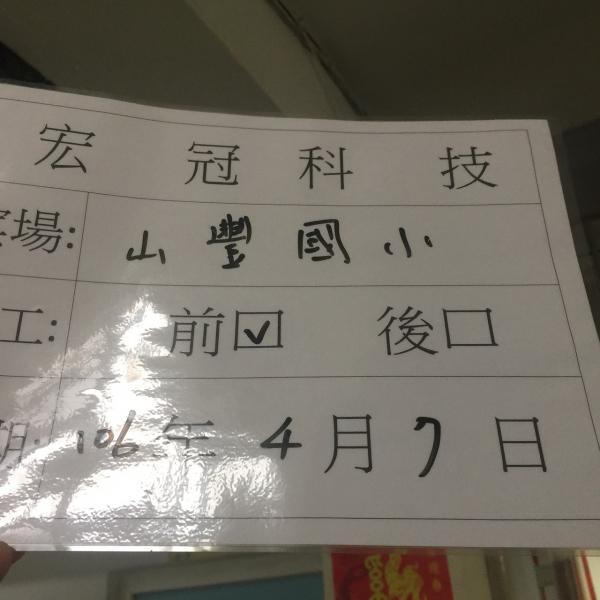 宏冠科技
案場: 山豐國小
工: 前☑ 後□
期: 106年4月7日